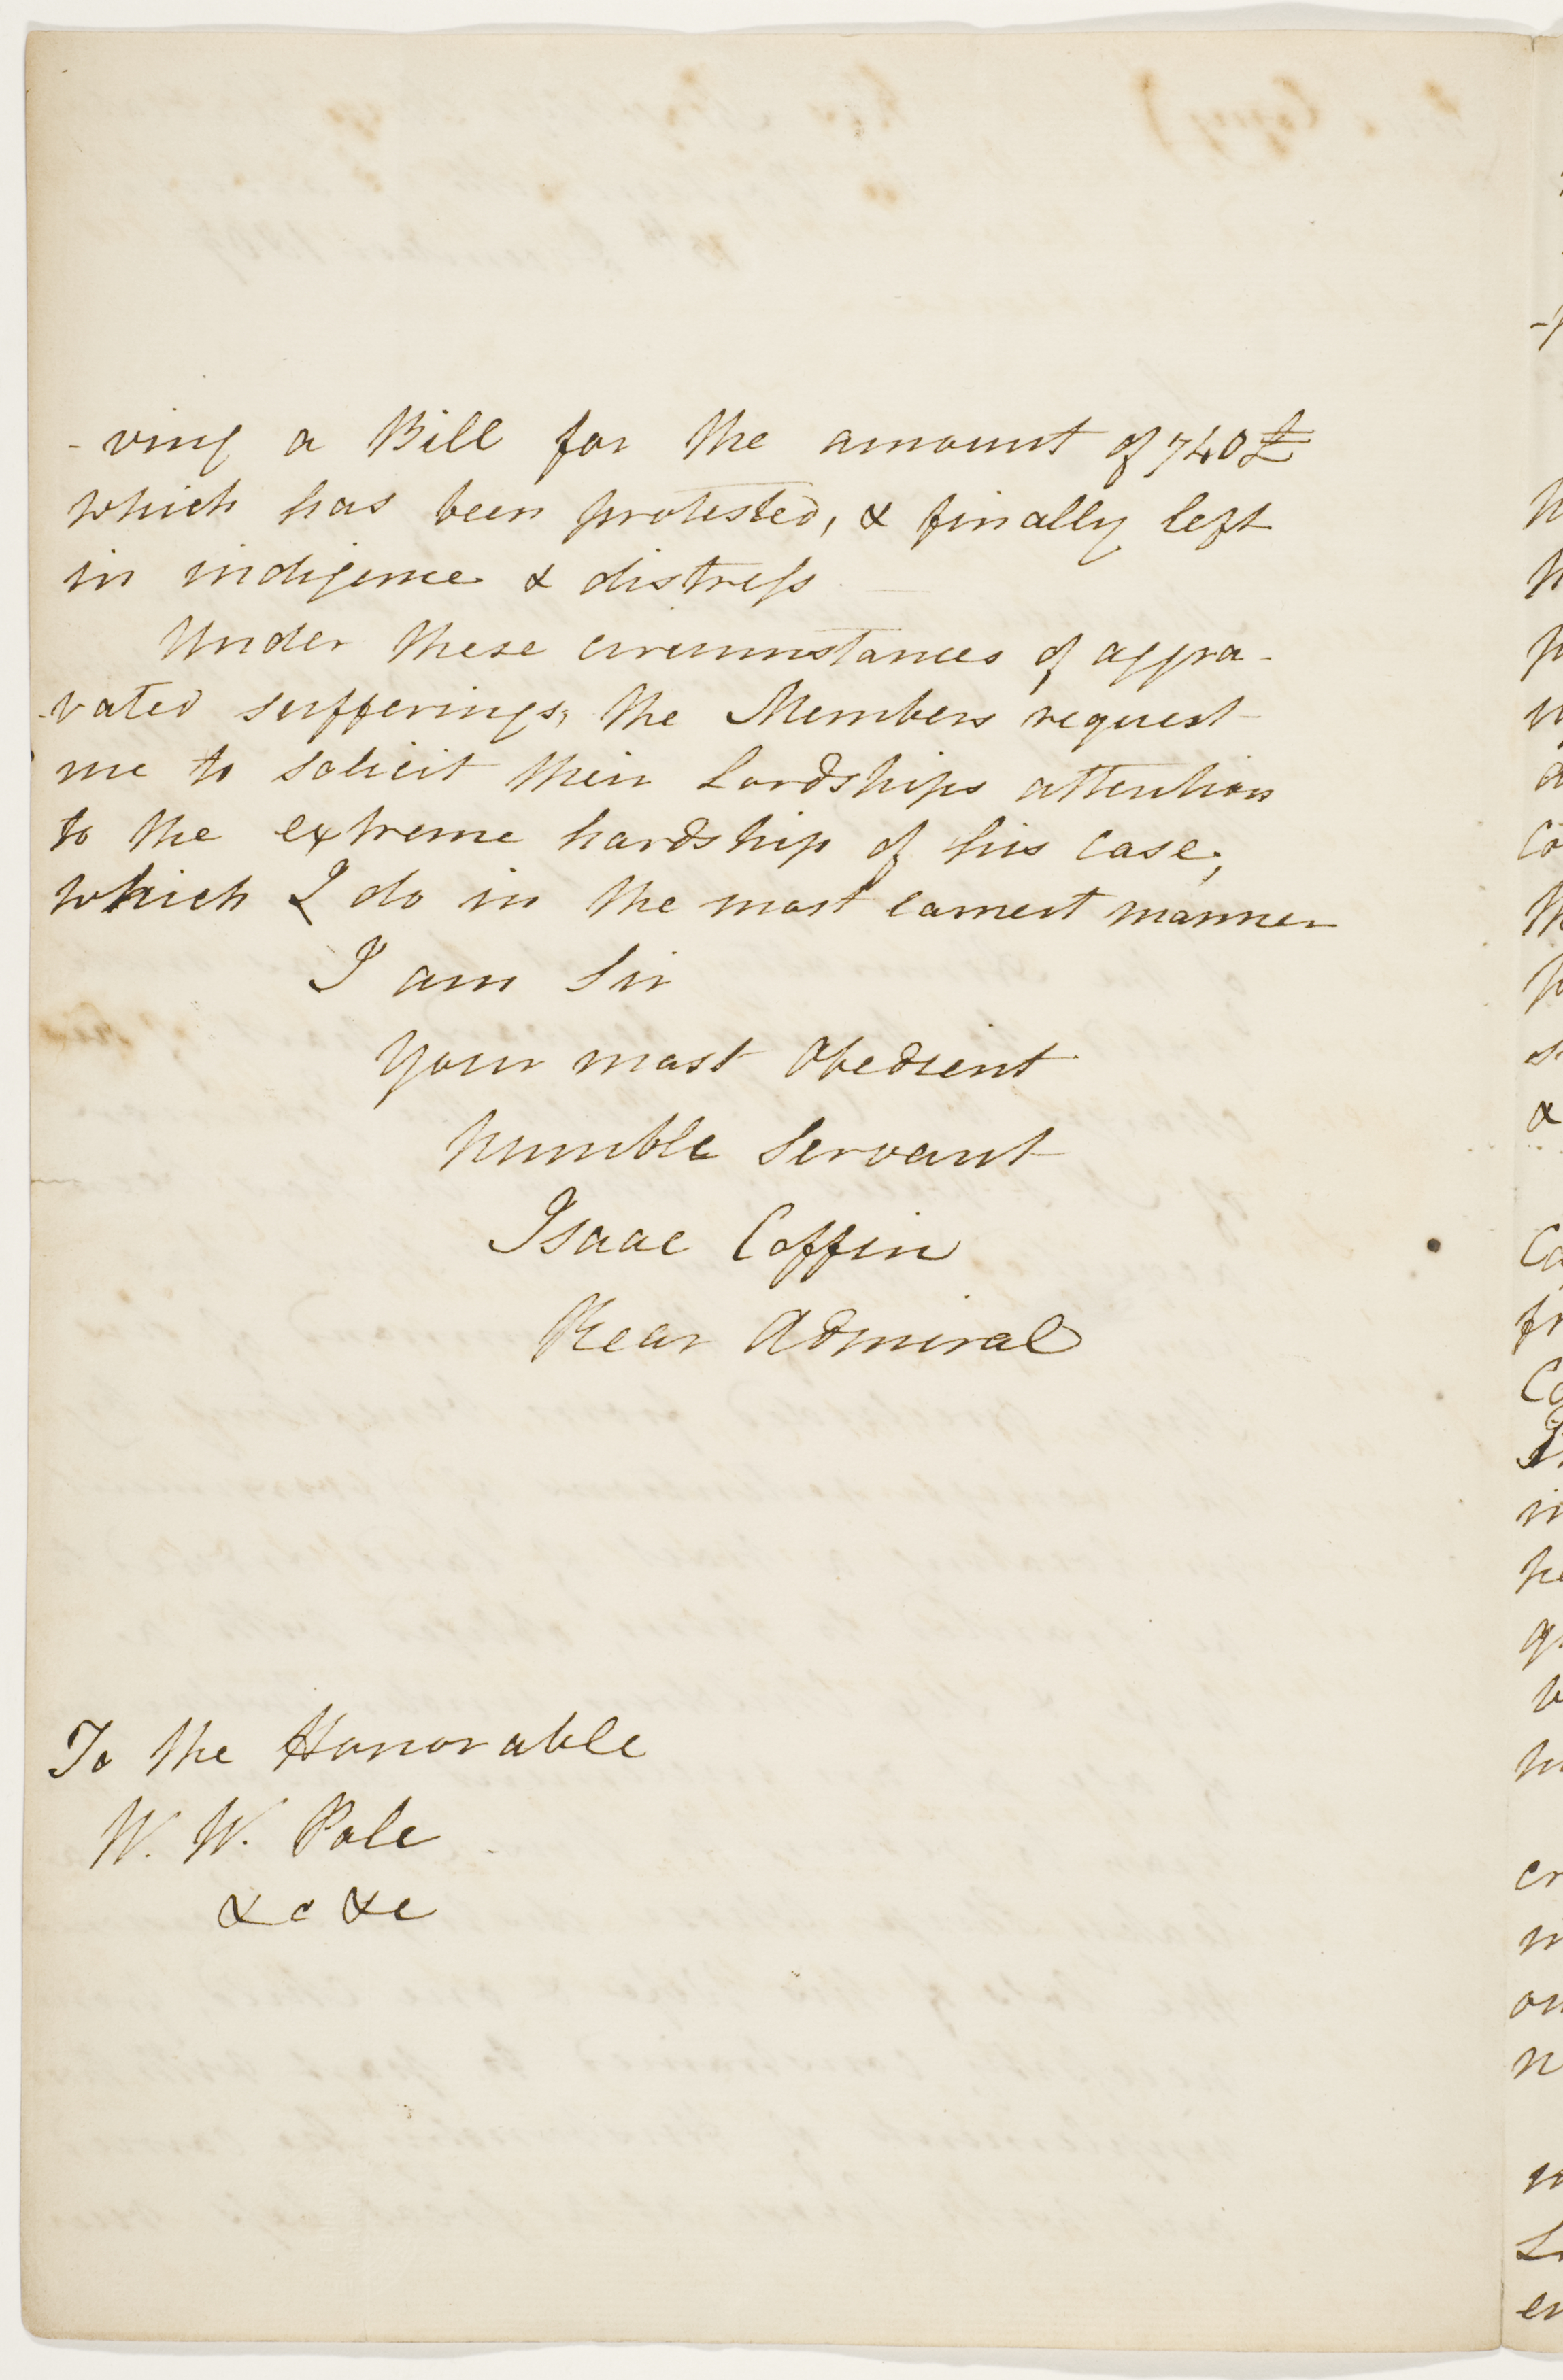 -ving a Bill for the amount of 740£
which has been protested, & finally left
in indigence & distress
Under these circumstances of aggra-
-vated sufferings, the Members request
me to solicit their Lordships attention
to the extreme hardship of his case,
which I do in the most earnest manner
I am Sir
Your most Obedient
humble Servant
Isaac Coffin
Rear Admiral
To the Honorable
W. W. Pole
&c &c